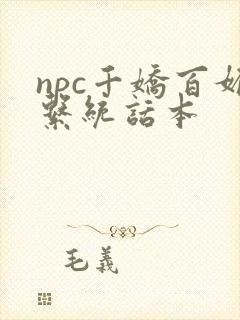 npc千嬌百媚
繫統話本
毛義